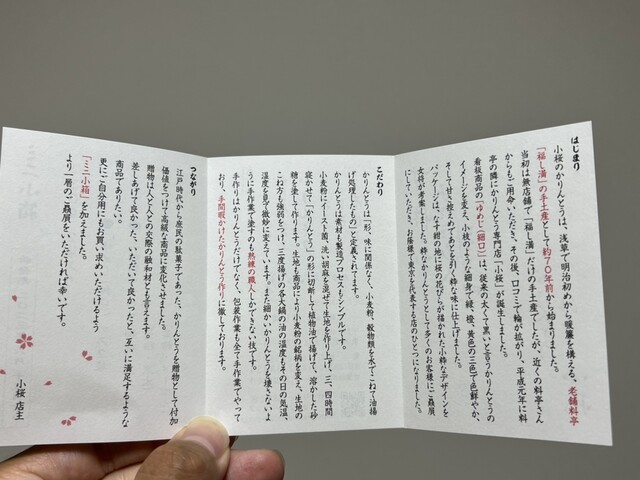 はじまり
小桜のかりんとうは、浅草で明治初めから暖簾を構える、老舗料亭
「福し満」の手土産として約70年前から始まりました。
当初は無店舗で「福し満」だけの手土産でしたが、近くの料亭さん
からもご用命いただき、その後、口コミで輪が拡がり、平成元年に料
亭の隣にかりんとう専門店「小桜」が誕生しました。
看板商品の「ゆめじ(細口)」は、従来の太くて黒いと言うかりんとうの
イメージを変え、小枝のような細身で緑、橙、黄色の三色で色鮮やか、
そして甘さ控えめであとを引く粋な味に仕上げました。
パッケージは、なす紺の地に桜の花びらが描かれた小粋なデザインを
女将が考案しました。粋なかりんとうとして多くのお客様にご贔屓
にしていただき、お陰様で東京を代表する店のひとつになりました。
こだわり
かりんとうは「形、味に関係なく、小麦粉、穀物類を水でこねて油揚
げ処理したもの」と定義されています。
かりんとうは素材も製造プロセスもシンプルです。
小麦粉にイースト菌、洗い胡麻を混ぜて生地を作り上げ、三、四時間
寝かせて「かりんとう」の形に切断して植物油で揚げて、溶かした砂
糖を塗して作ります。生地も商品により小麦粉の銘柄を変え、生地の
こね方も強弱をつけ、三度揚げの各大鍋の油の温度もその日の気温、
湿度を見て微妙に変えています。また細かいかりんとうを壊さないよ
うに手作業で塗すのも熟練の職人しかできない技です。
手作りはかりんとうだけでなく、包装作業も全て手作業でやって
おり、手間暇かけたかりんとう作りに徹しております。
つながり
江戸時代から庶民の駄菓子であった、かりんとうを贈物として付加
価値をつけて高級な商品に変化させました。
贈物は人と人との交際の融和材とも言えます。
差しあげて良かった、いただいて良かったと、互いに満足するような
商品でありたい。
更にご自分用にもお買い求めいただけるよう
「ミニ小箱」を加えました。
より一層のご贔屓をいただければ幸いです。
小桜 店主